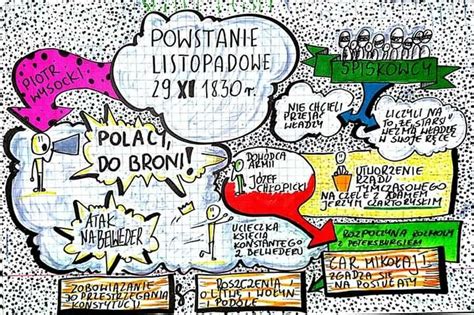 POWSTANIE
LISTOPADOWE
29 XI 1830 r.
PIOTR
WYSOCKI
SPISKOWCY
NIE CHCIELI
PRZEJĄĆ
WŁADZY
LICZYLI NA
TO, ŻE STARSI
WEZMĄ WŁADZĘ
W SWOJE RĘCE
POLACY,
DO BRONI!
ATAK
NA BELWEDER
UCIECZKA
KSIĘCIA
KONSTANTEGO
Z BELWEDERU
DOWÓDCA
ARMII
JÓZEF
CHŁOPICKI
UTWORZENIE
RZĄDU
TYMCZASOWEGO
NA CZELE Z ADAMEM
JERZYM CZARTORYSKIM
ROZPOCZYNA ROZMOWY
Z PETERSBURGIEM
CAR MIKOŁAJ I
ZGADZA SIĘ
NA POSTULATY
ZOBOWIĄZANIE
DO PRZESTRZEGANIA
KONSTYTUCJI
ROSZCZENIA
O LITWĘ, WOŁYŃ I
PODOLE